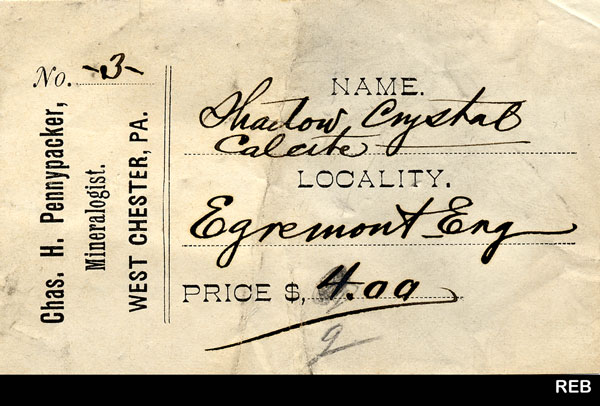 No. -3-
Chas. H. Pennypacker,
Mineralogist.
WEST CHESTER, PA.
NAME.
Shadow Crystal
Calcite
LOCALITY.
Egremont Eng
PRICE $, 4.00
9
REB